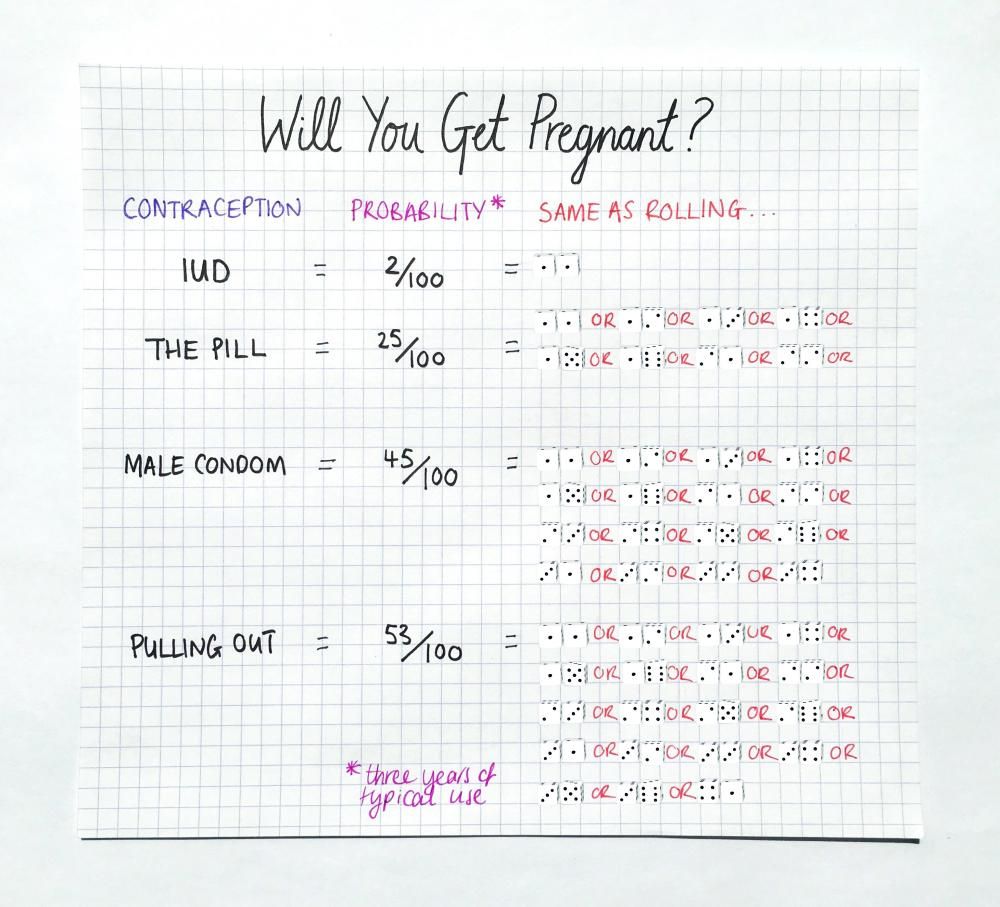 Will You Get Pregnant?
CONTRACEPTION PROBABILITY* SAME AS ROLLING...
IUD = 2/100 =
OR OR OR OR
THE PILL = 25/100 =
OR OR OR OR
MALE CONDOM = 45/100 = OR OR OR OR
OR OR OR OR
OR OR OR OR
OR OR OR
PULLING OUT = 53/100 = OR OR OR OR
OR OR OR OR
OR OR OR OR
OR OR OR OR
OR OR
*three years of
typical use